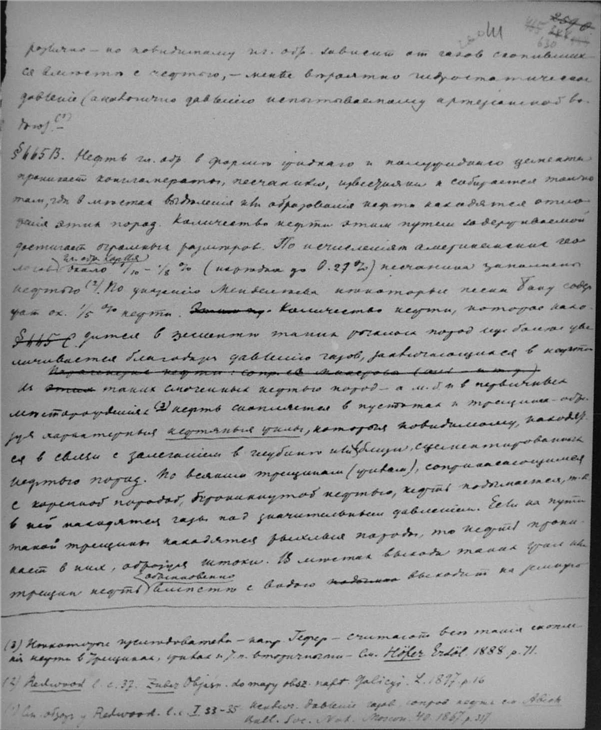 630
розично — но повидимому гл. обр. зависит от газов скопивших-
ся вместе с нефтью, — менее вероятно гидростатическое
давление (аналогично давлению испытываемому артезианской во-
дою).(1)
§ 445 В. Нефть гл. обр. в форме жидкого и полужидкого цемента
проникает конгломераты, песчаники, известняки и собирается только
там, где в местах выделения или образования нефти находятся отло-
жения этих пород. Количество нефти этим путем задерживаемой
достигает огромных размеров. По исчислениям американских гео-
логов около 1/10 - 1/8 % (иногда до 0.27%) песчаника заполнены
нефтью (2). По указанию Менделеева некоторые пески Баку содер-
жат ок. 1/5 % нефти. Количество нефти, которая нахо-
дится в цементе таких рыхлых пород еще более уве-
личивается благодаря давлению газов, заключающихся в нефти
Из таких смоченных нефтью пород — а м.б. и в первичных
месторождениях нефть скопляется в пустотах и трещинах, обра-
зуя характерные нефтяные жилы, которые повидимому, находят-
ся в связи с залеганием в глубине сцементированных
нефтью пород. По всяким трещинам (жилам), соприкасающимся
с коренной породой, проникнутой нефтью, нефть подымается, т.к.
в ней находятся газы под значительным давлением. Если на пути
такой трещины находятся рыхлые породы, то нефть прони-
кает в них, образуя штоки. В местах выхода таких жил или
трещин нефть обыкновенно вместе с водою выходит на земную
(1) Некоторые исследователи — напр. Гефер — считают все такие скопле-
ния нефти в трещинах, жилах и т.п. вторичными — См. Höfer Erdöl. 1888 p. 71.
(2) Redwood l. c. 37. Zuber Objaśn. do mapy obsz. naft. Galicyi. L. 1897. p. 16
См. обзор у Redwood. l. c. I. 33-35 давления газов Abich
Bull. Soc. Nat. Moscou. 40. 1867. p.